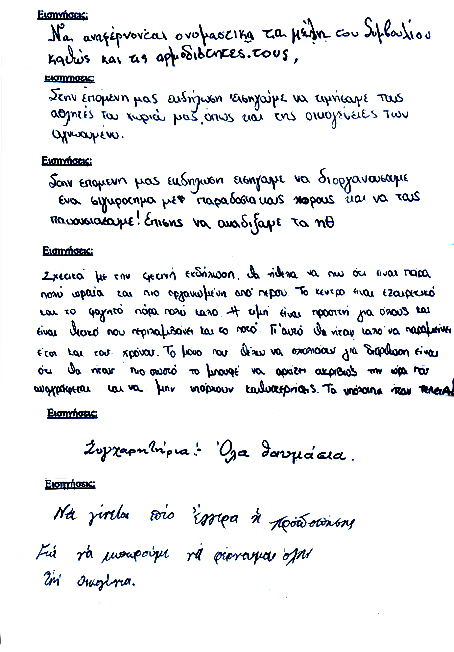 Εισηγήσεις:
Να αναφέρονται ονομαστικά τα μέλη του Συμβουλίου
καθώς και τις αρμοδιότητες τους,
Εισηγήσεις:
Στην επόμενη μας εκδήλωση εισηγούμε να τιμήσουμε τους
αθλητές του χωριού μας, όπως και της οικογένειές των
Εισηγήσεις:
Στην επόμενη μας εκδήλωση εισηγούμε να διοργανώσουμε
ένα συγκρότημα με παραδοσιακούς χορούς και να τους
παρουσιάσουμε! Επίσης να αναδίξαμε τα ηθ
Εισηγήσεις:
Σχετικά με την φετινή εκδήλωση, θα ήθελα να πω ότι είναι πάρα
πολύ ωραία και πιο οργανωμένη από πέρσυ. Το κέντρο είναι εξαιρετικό
και το φαγητό πάρα πολύ καλό. Η τιμή είναι προσιτή για όλους και
είναι θετικό που περιλαμβάνει και το ποτό. Γι'αυτό θα ήταν καλό να παραμείνει
έτσι και του χρόνου. Το μόνο που θέλω να σχολιάσω για διόρθωση είναι
ότι θα ήταν πιο σωστό το μπουφέ να αρχίζει ακριβώς την ώρα που
αναγράφεται και να μην υπάρχουν καθυστερήσης. Τα υπόλοιπα ήταν τέλεια!
Εισηγήσεις:
Συγχαρητήρια! - Όλα θαυμάσια.
Εισηγήσεις:
Να γίνεται πιο έγκαιρα η
Για να μπορούμε να φέρνουμε όλην
την οικογένεια.